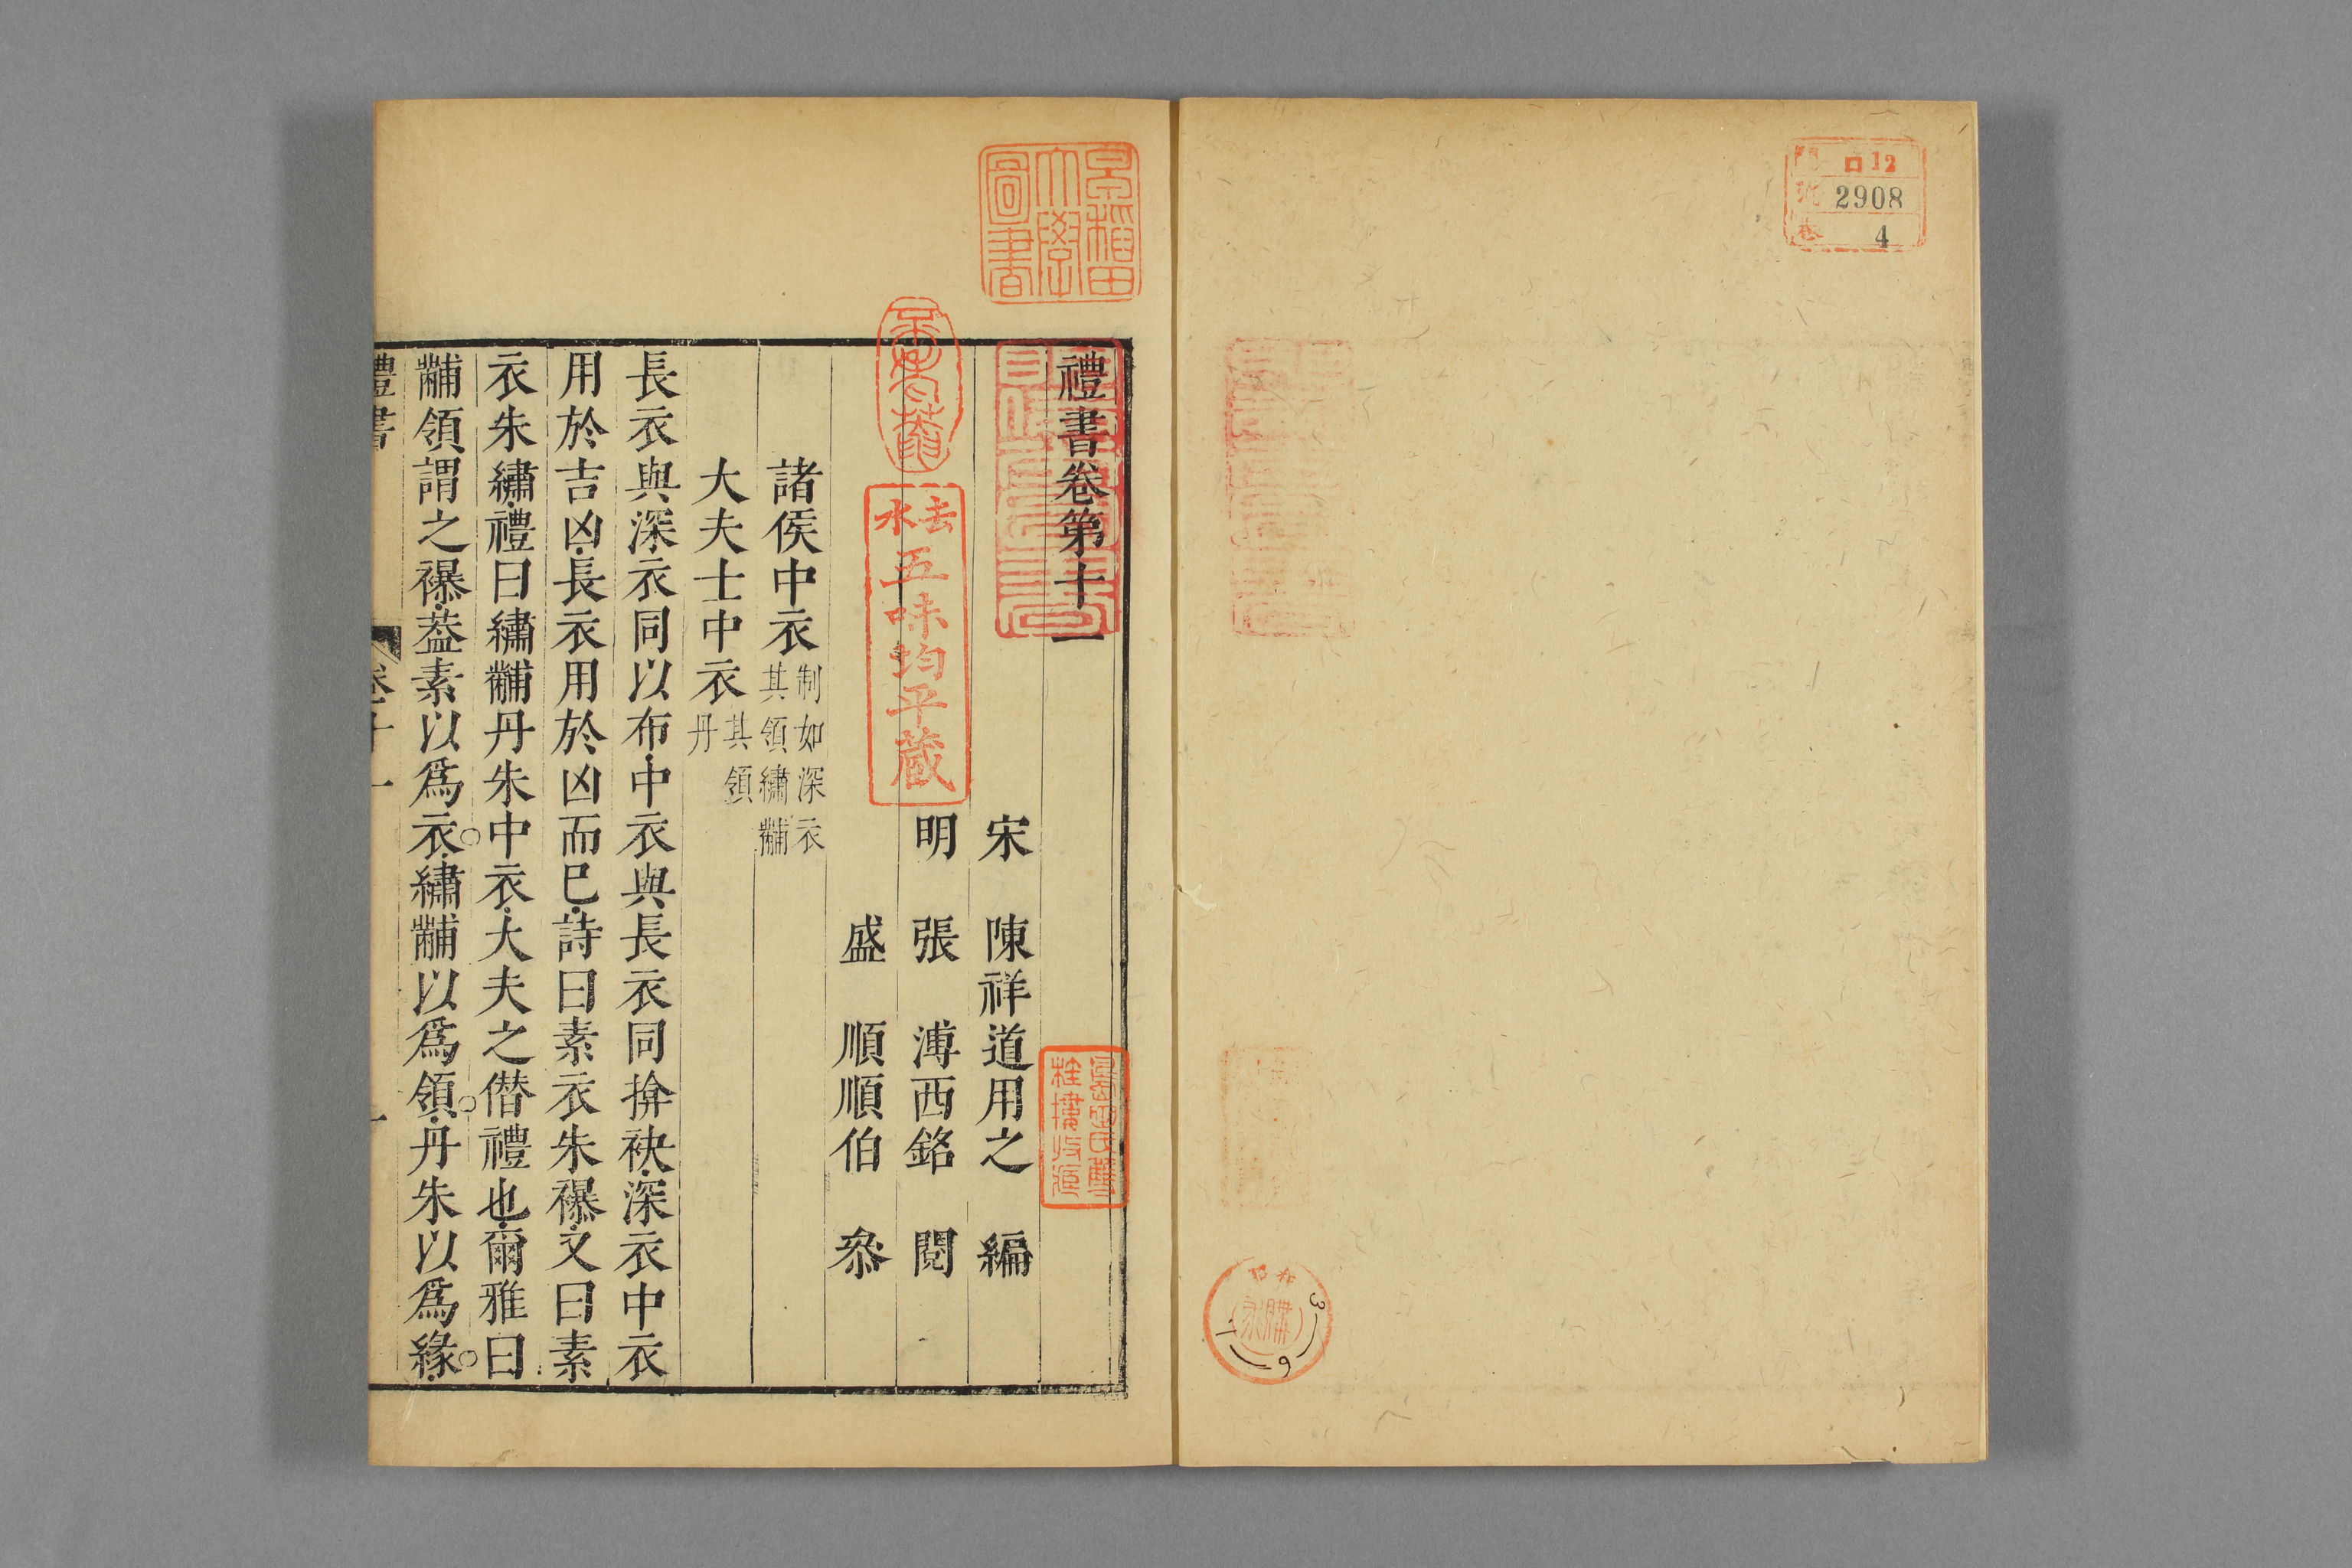 ロ12
號 2908
卷 4
購求
3
6
早稻田大學圖書
禮書卷第十一
宋 陳祥道用之 編
明 張 溥西銘 閱
盛 順順伯 叅
去水五味均平蔵
諸侯中衣 制如深衣其領繡黼
大夫士中衣 其領丹
長衣與深衣同以布中衣與長衣同揜袂深衣中衣
用於吉凶長衣用於凶而已詩曰素衣朱襮文曰素
衣朱繡禮曰繡黼丹朱中衣大夫之僣禮也爾雅曰
黼領謂之襮葢素以爲衣繡黼以爲領丹朱以爲緣
禮書 卷十一 一